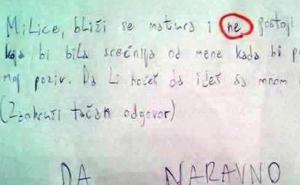 Milice, bliži se matura i ne postoji
koja bi bila srećnija od mene kada bi p
moj poziv. Da li hoćeš da ideš sa mnom
(Zaokruži tačan odgovor)
DA NARAVNO